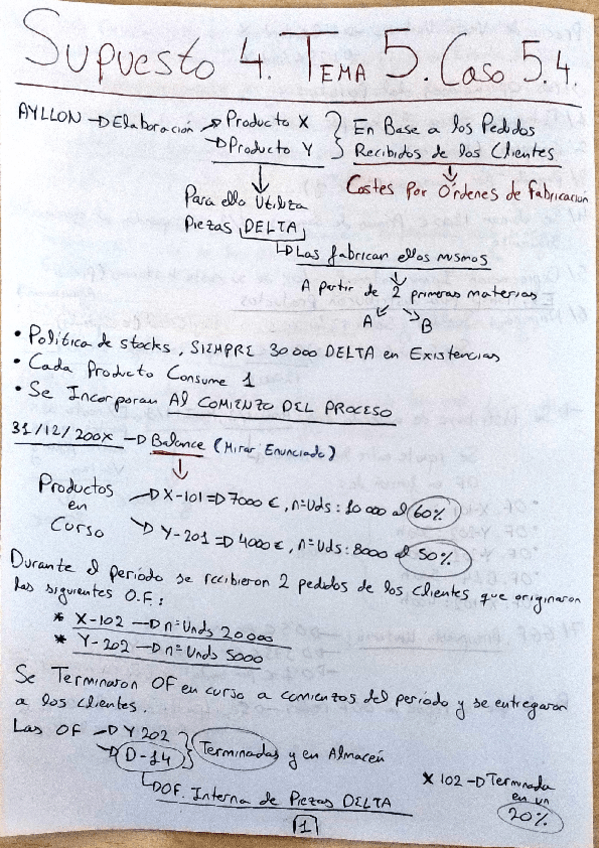 Supuesto 4. Tema 5. Caso 5.4.
AYLLON → Elaboración → Producto X } En Base a los Pedidos
→ Producto Y } Recibidos de los Clientes
↓ Costes Por Órdenes de Fabricación
Para ello Utiliza
Piezas DELTA
↳ Las fabrican ellos mismos
A partir de 2 primeras materias
A B
• Política de stocks, SIEMPRE 30000 DELTA en Existencias
• Cada Producto Consume 1
• Se Incorporan Al COMIENZO DEL PROCESO
31/12/200X → Balance (Mirar Enunciado)
Productos en Curso → X-101 ⇒ 7000 €, nº Uds: 10000 al 60%
→ Y-201 ⇒ 4000 €, nº Uds: 8000 al 50%
Durante el período se recibieron 2 pedidos de los clientes que originaron
las siguientes O.F:
* X-102 → nº Unds 20000
* Y-202 → nº Unds 5000
Se Terminaron OF en curso a comienzos del período y se entregaron
a los clientes.
Las OF → Y202 } Terminadas y en Almacén
→ D-14
↳ OF. Interna de Piezas DELTA
X102 → Terminada
en un
20%
1